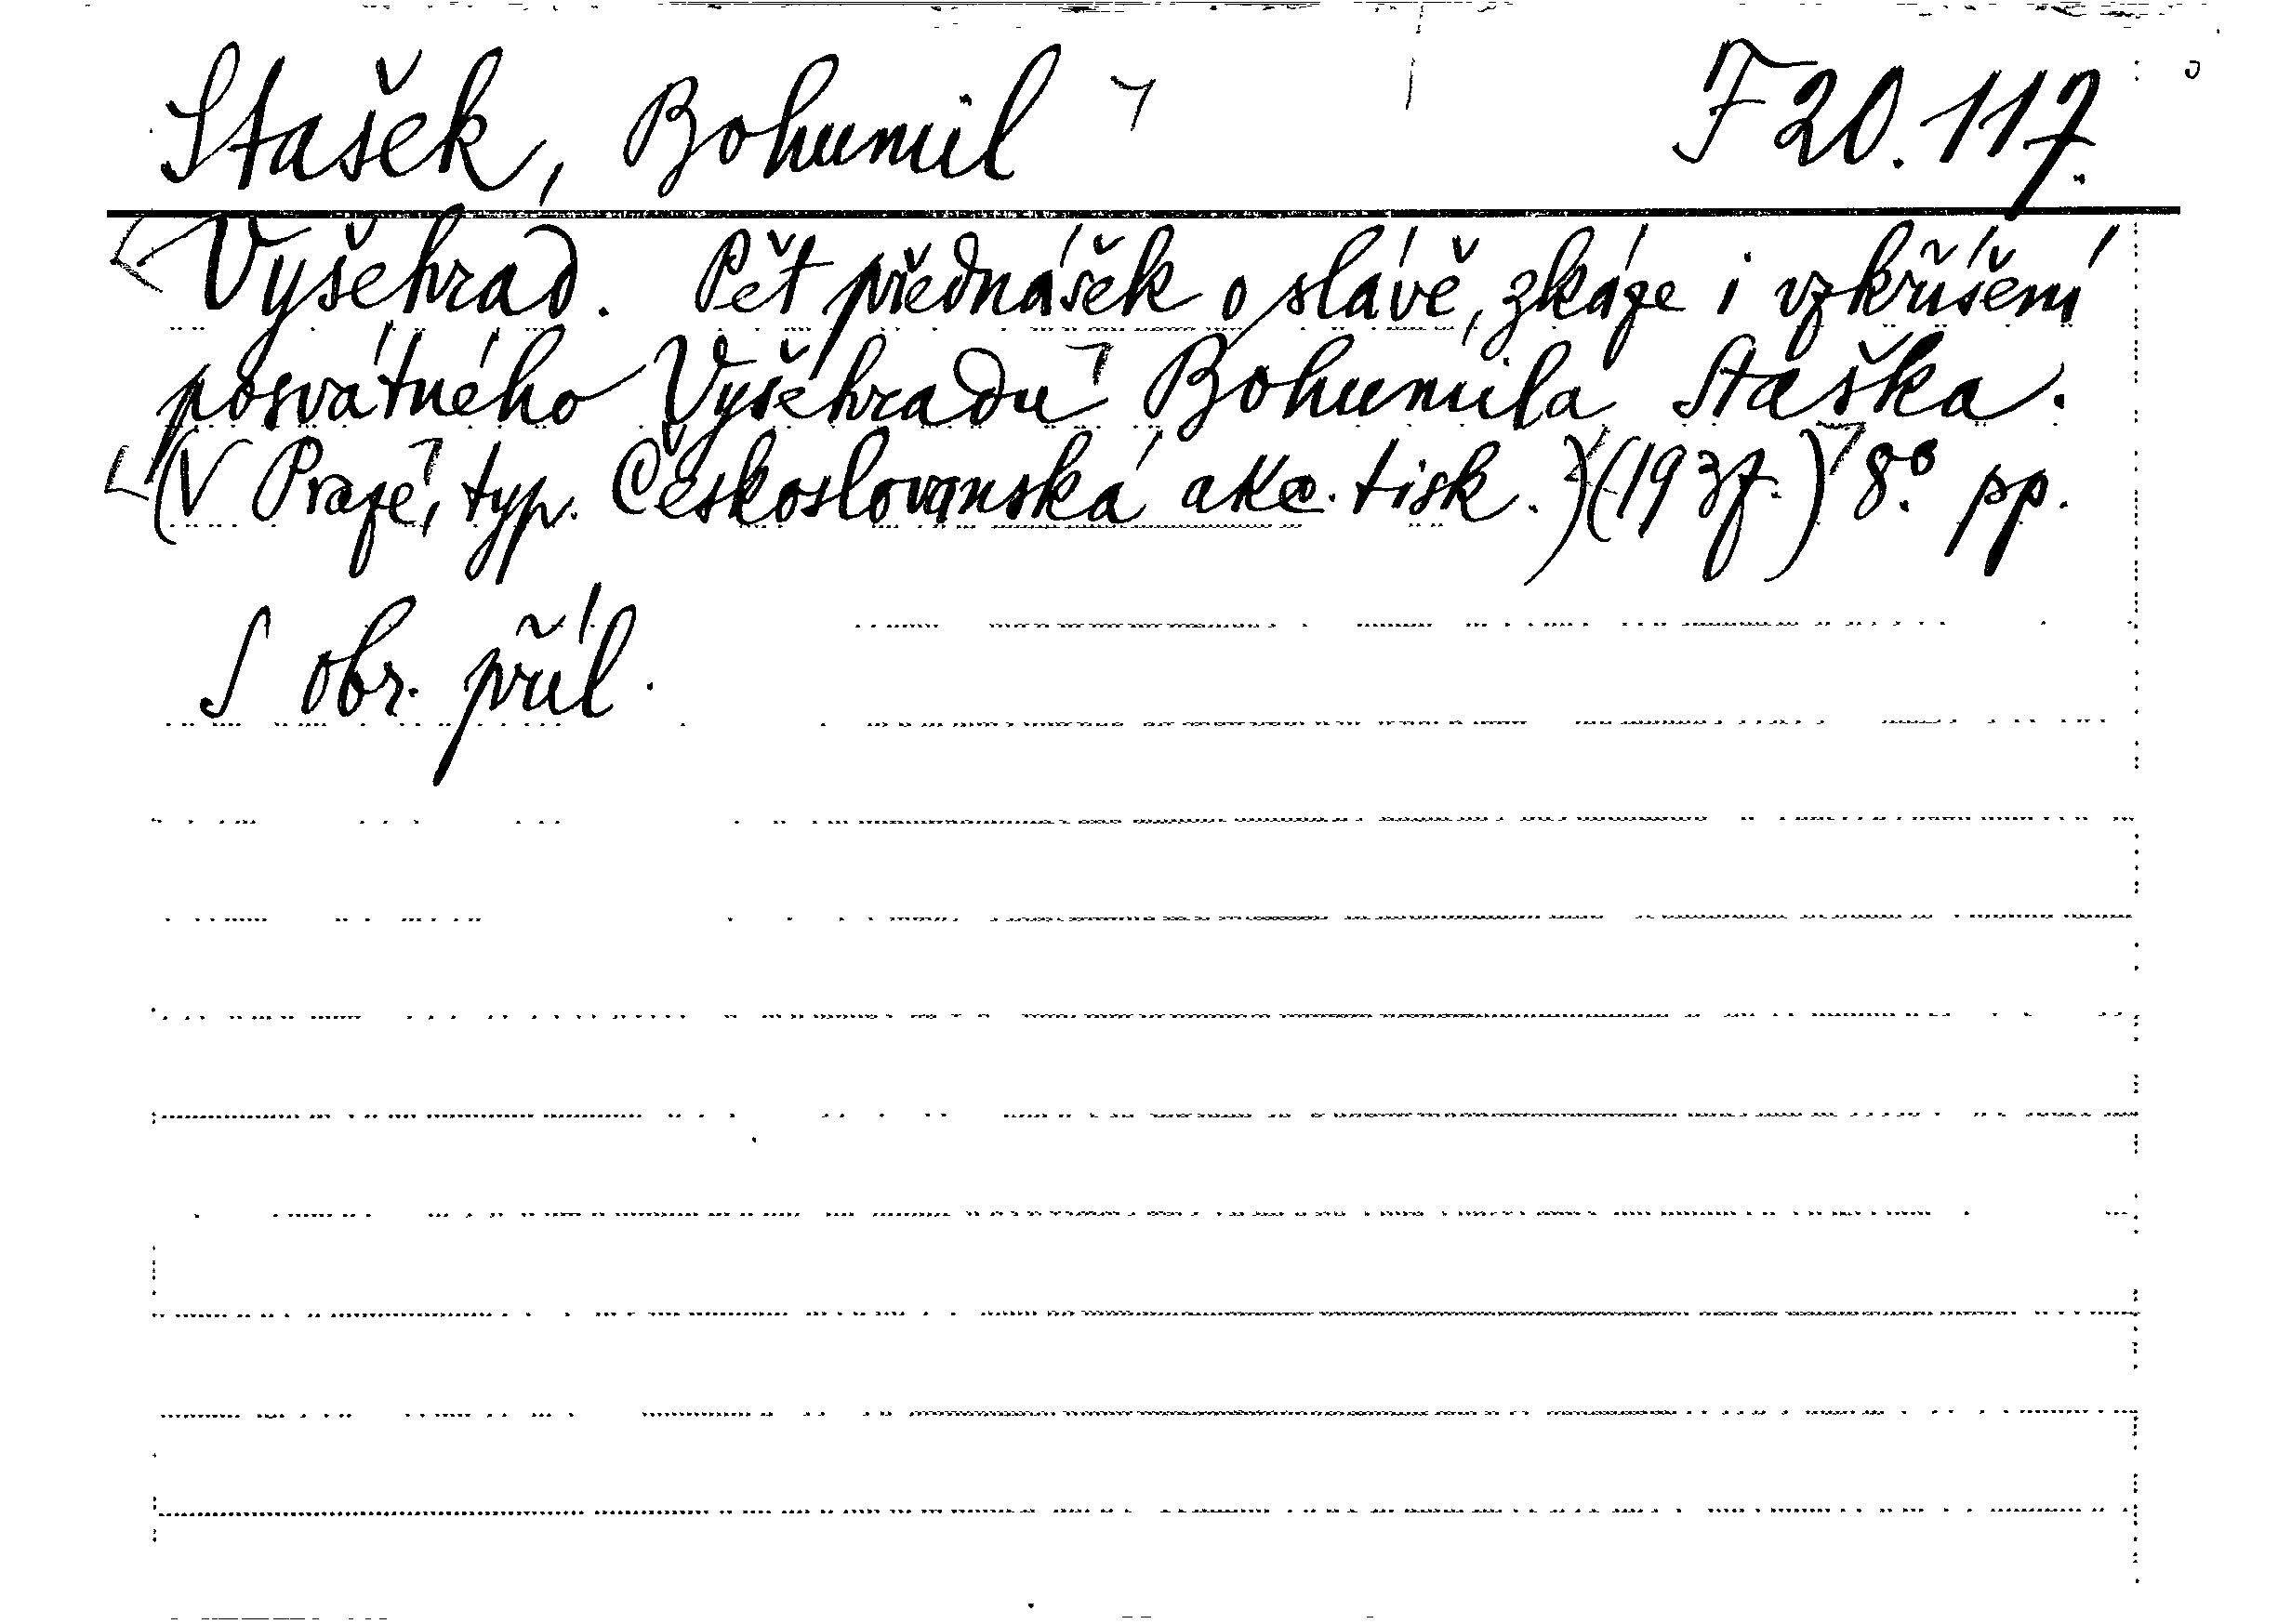 Stašek, Bohumil F 20.117.
Vyšehrad. Pět přednášek o slávě, zkáze i vzkříšení
posvátného Vyšehradu Bohumila Staška.
(V Praze, typ. Českoslovanská akc. tisk.) (1937.) 8° pp.
S obr. příl.